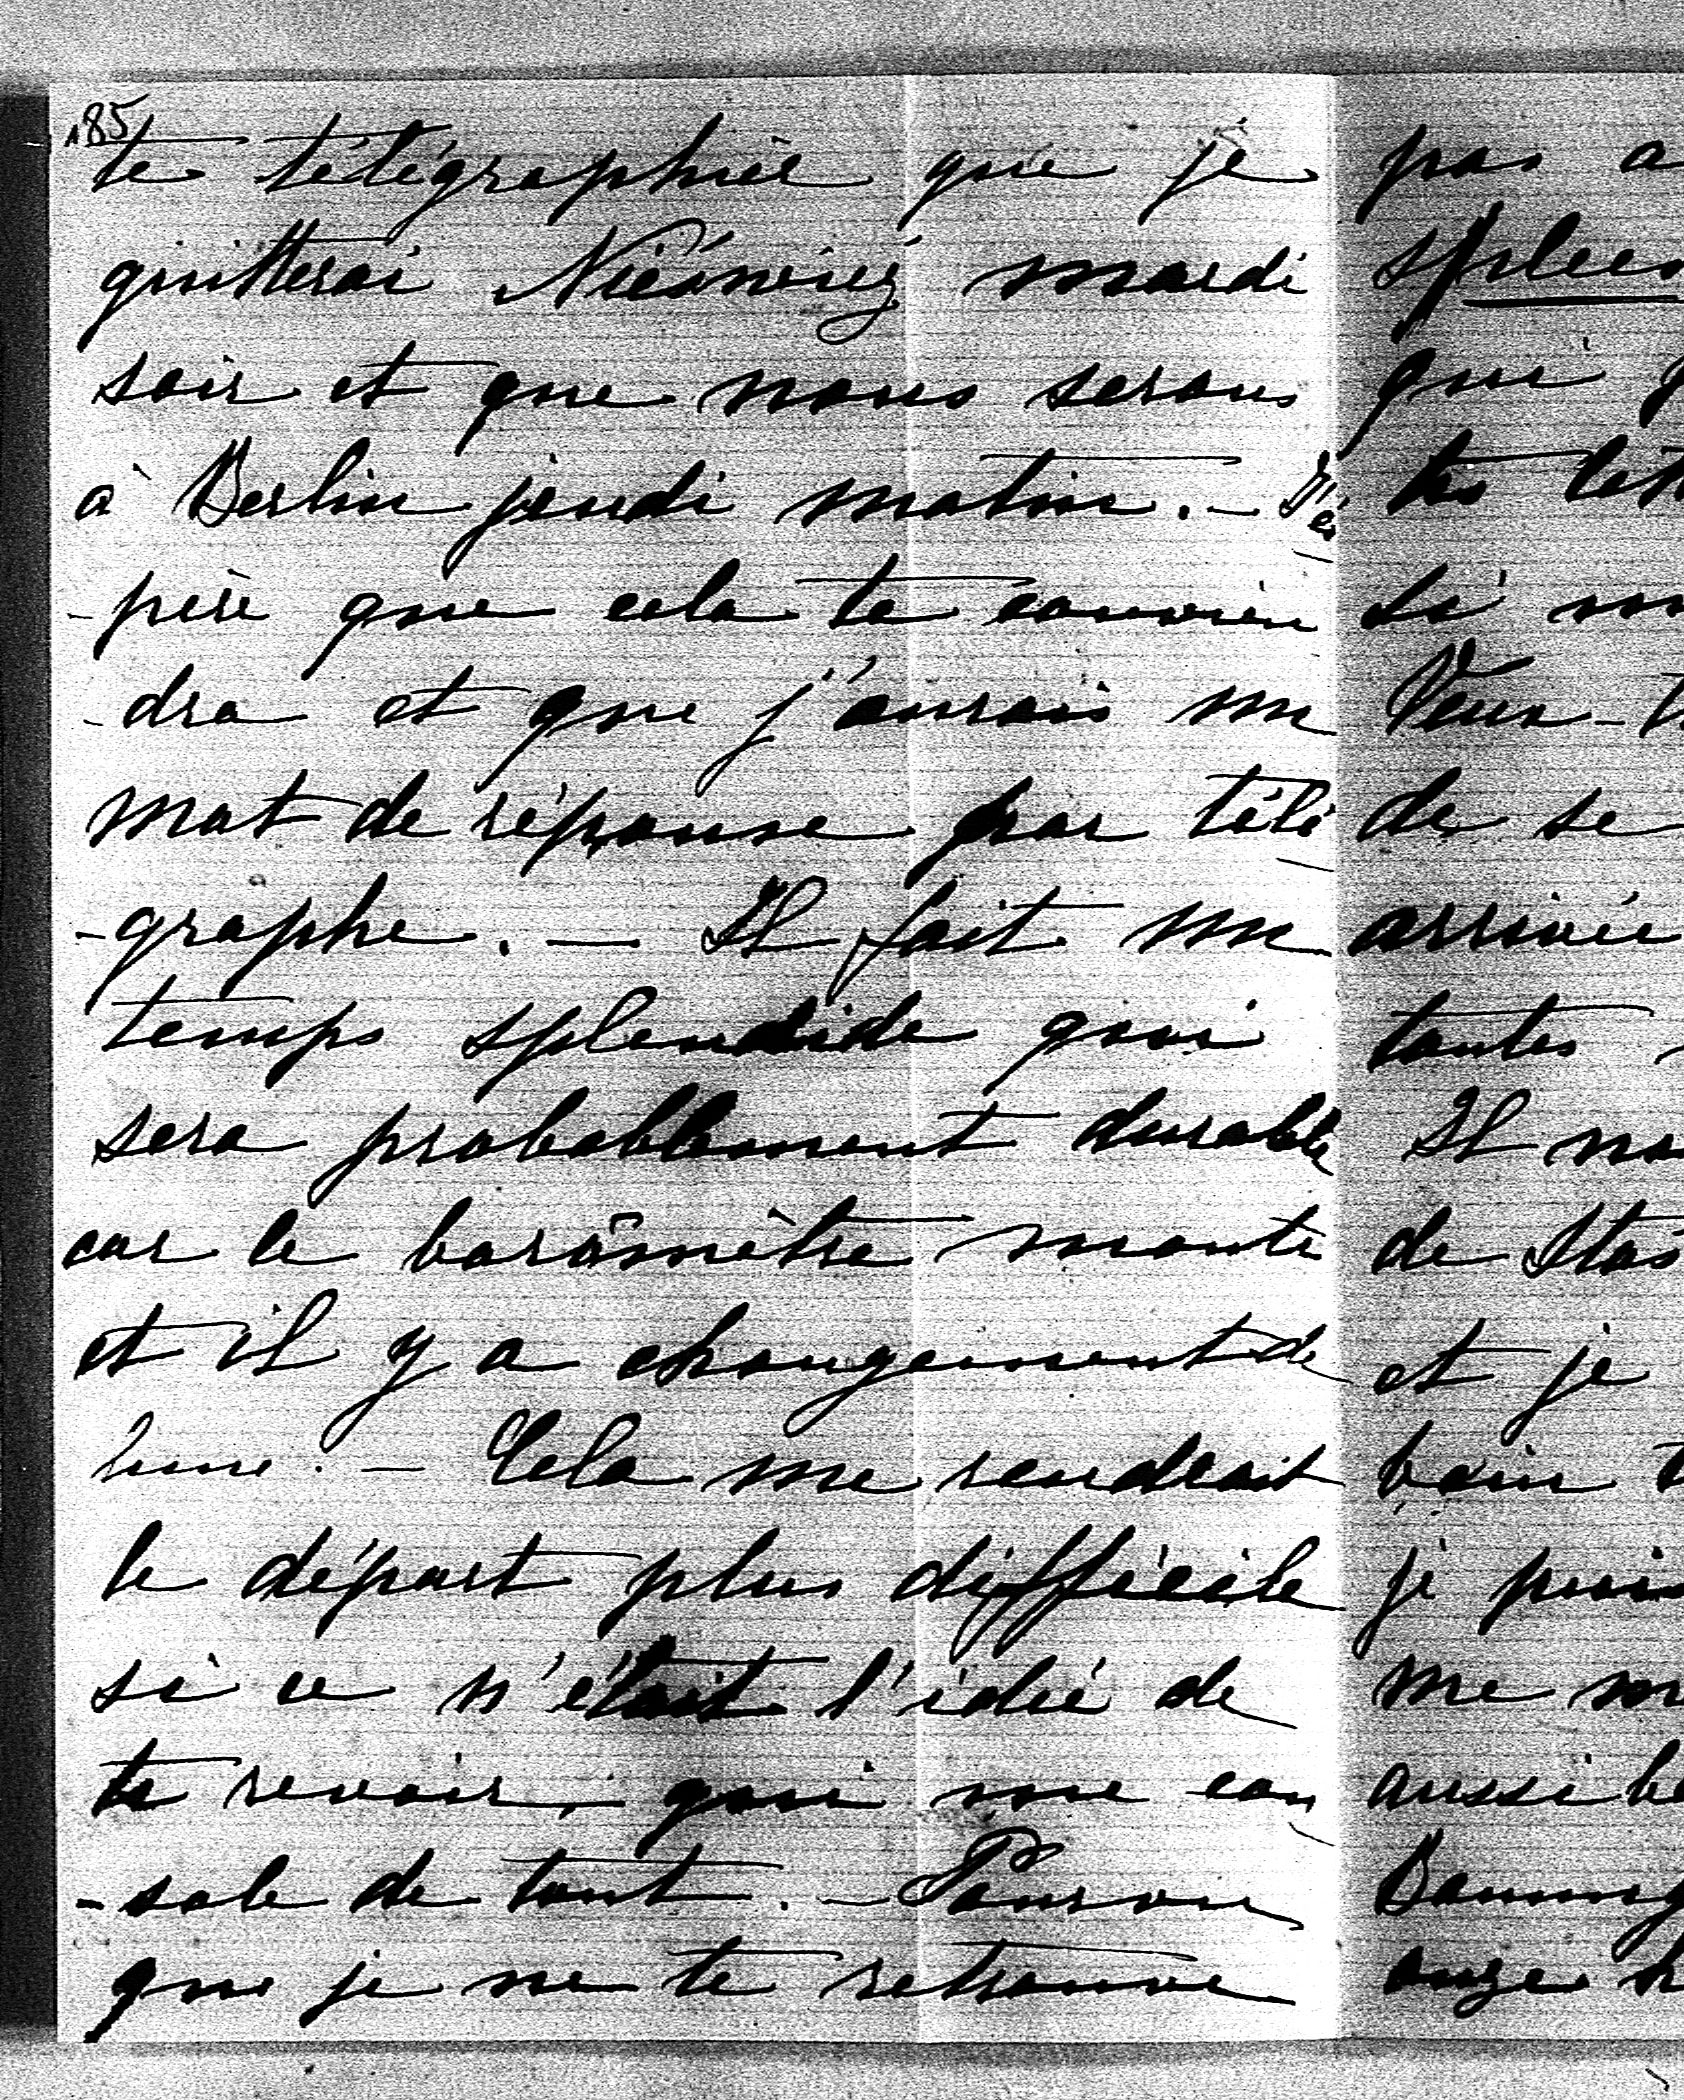 185
te télégraphier que je
quitterai Nieśwież mardi
soir et que nous serons
à Berlin jeudi matin. – J'es
-père que cela te convien
-dra et que j'aurais un
mot de réponse par télé
-graphe. – Il fait un
temps splendide qui
sera probablement durable
car le baromètre monte
et il y a changement de
lune. – Cela me rendrait
le départ plus difficile
si ce n'était l'idée de
te revoir, qui me con
-sole de tout. – Pourvu
que je ne te retrouve
pas a
spleen
qui
tes lett
si m
Veux-t
de se
arrivée
toutes
Il
de Stas
et je
bain
je puis
me
aussi be
onze h